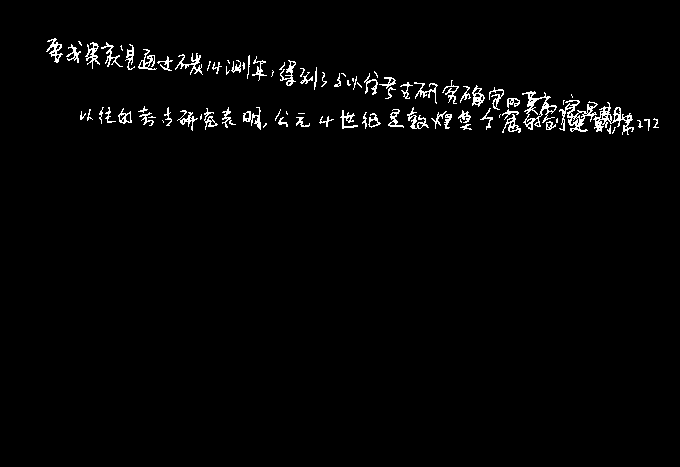 要成果就是通过碳14测年,得到了与以往考古研究确定的莫高窟早期
以往的考古研究表明,公元4世纪是敦煌莫高窟的创建期,第272